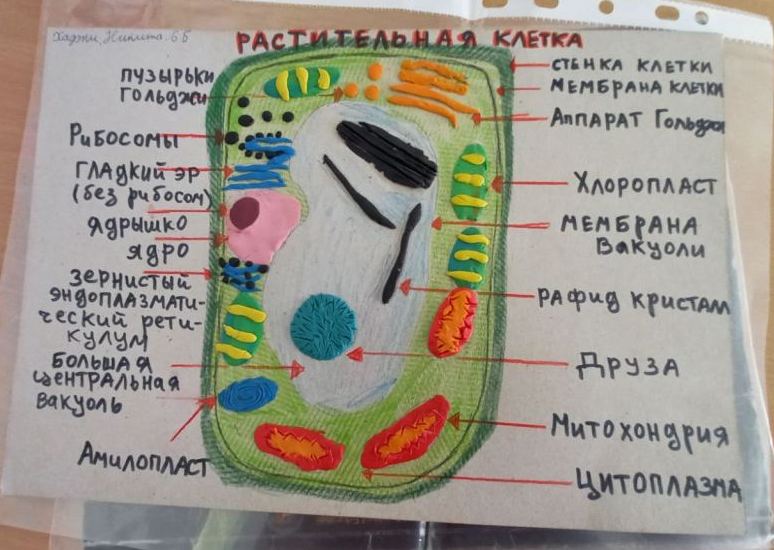 Хаджи Никита. 6Б
РАСТИТЕЛЬНАЯ КЛЕТКА
ПУЗЫРЬКИ
ГОЛЬДЖИ
РИБОСОМЫ
ГЛАДКИЙ ЭР
(без рибосом)
ЯДРЫШКО
ЯДРО
ЗЕРНИСТЫЙ
ЭНДОПЛАЗМАТИ-
ЧЕСКИЙ РЕТИ-
КУЛУМ
БОЛЬШАЯ
ЦЕНТРАЛЬНАЯ
ВАКУОЛЬ
АМИЛОПЛАСТ
СТЕНКА КЛЕТКИ
МЕМБРАНА КЛЕТКИ
АППАРАТ ГОЛЬДЖИ
ХЛОРОПЛАСТ
МЕМБРАНА
ВАКУОЛИ
РАФИД КРИСТАЛЛ
ДРУЗА
МИТОХОНДРИЯ
ЦИТОПЛАЗМА